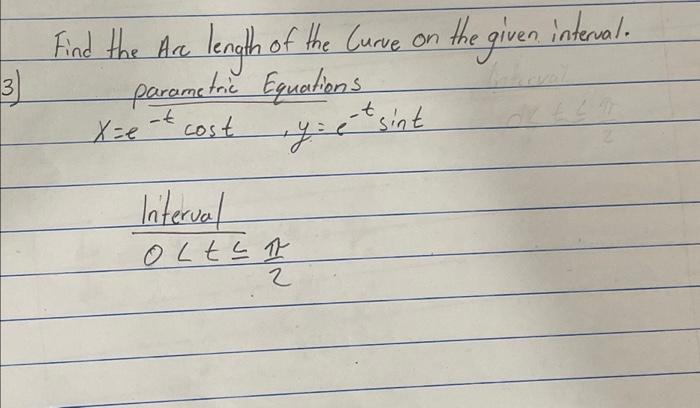 Find the Arc length of the Curve on the given interval.
3) parametric Equations
x=e^-t cost , y=e^-t sint
Interval
0<t≤π/2
Interval
0<t≤π/2